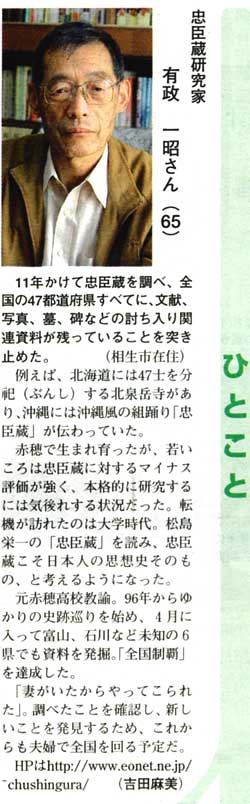 忠臣蔵研究家
有政 一昭さん(65)
11年かけて忠臣蔵を調べ、全
国の47都道府県すべてに、文献、
写真、墓、碑などの討ち入り関
連資料が残っていることを突き
止めた。 (相生市在住)
例えば、北海道には47士を分
祀(ぶんし)する北泉岳寺があ
り、沖縄には沖縄風の組踊り「忠
臣蔵」が伝わっていた。
赤穂で生まれ育ったが、若い
ころは忠臣蔵に対するマイナス
評価が強く、本格的に研究する
には気後れする状況だった。転
機が訪れたのは大学時代。松島
栄一の「忠臣蔵」を読み、忠臣
蔵こそ日本人の思想史そのも
の、と考えるようになった。
元赤穂高校教諭。96年からゆ
かりの史跡巡りを始め、4月に
入って富山、石川など未知の6
県でも資料を発掘。「全国制覇」
を達成した。
「妻がいたからやってこられ
た」。調べたことを確認し、新し
いことを発見するため、これか
らも夫婦で全国を回る予定だ。
HPはhttp://www.eonet.ne.jp/
~chushingura/ (吉田麻美)
ひとこと